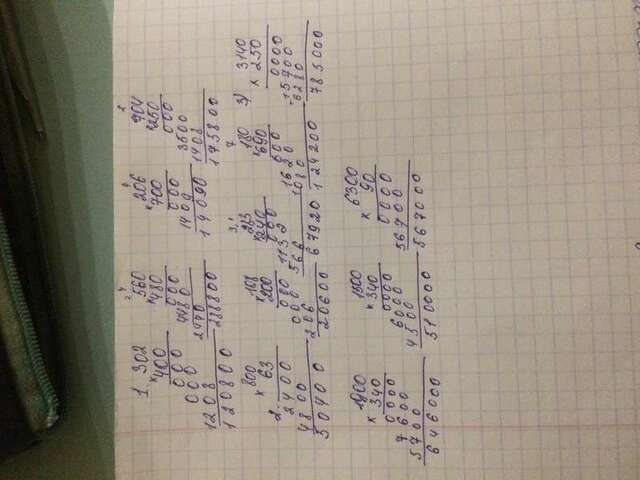 2 4 4 2
1. 302 560 206 704
×400 ×480 ×700 ×250
000 000 000 000
000 4480 1409 3500
1208 2440 14090 1408
120800 288800 175800
3,1 7
×800 ×108 283 ×180 3) 3140
2. 63 200 ×240 690 ×250
2400 000 000 600 0000
4800 000 1132 1620 15700
50400 206 566 1080 6280
20600 67920 124200 785000
1900 1500 6300
×340 ×340 ×90
0000 0000 0000
7600 6000 56700
5700 4500 567000
646000 510000